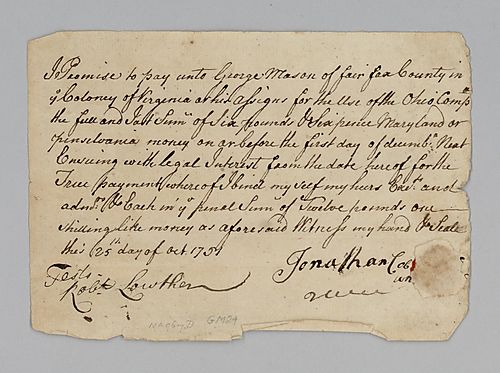 I Promise to pay unto George Mason of fair fax County in
ye Coloney of Virginia or his assigns for the Use of the Ohio Compa
the full and Just Sum of Six pounds & Six pence Maryland or
pinsilvania money on or before the first day of decmbr. Next
Ensuing with legal Interest from the date here of for the
True payment whereof I bind my Self my heirs Exrs. and
admrs. Each in ye penal Sum of Twelve pounds one
Shilling like money as aforesaid Witness my hand & Seale
this 25th day of Oct 1751
Jonathan Cob
Test
Robt. Lowther
GM24